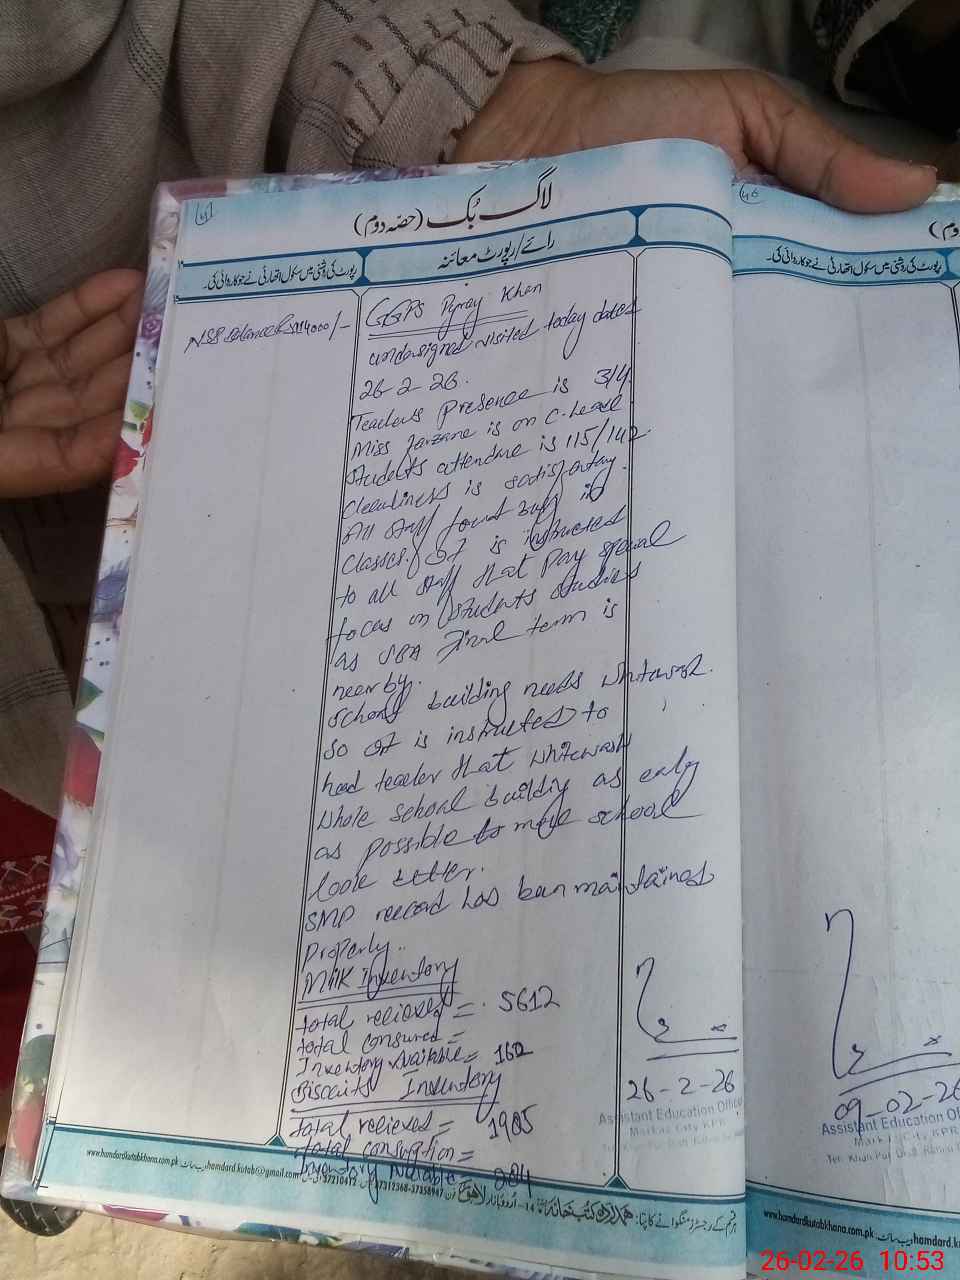 41
46
لاگ بُک (حصّہ دوم)
رائے/رپورٹ معائنہ
رپورٹ کی روشنی میں سکول اتھارٹی نے جو کاروائی کی۔
رپورٹ کی روشنی میں سکول اتھارٹی نے جو کاروائی کی۔
NSB Balance Rs 114000/-
GGPS Pyray Khan
undersigned visited today dated
26-2-26.
Teachers Presence is 3/4.
Miss Farzane is on C. Leave.
Students attendance is 115/142.
Cleanliness is sadisfactory.
All staff found busy in
classes. It is instructed
to all staff that Pay special
focus on students studies
as SBA Final term is
nearby.
School building needs whitewash.
so it is instructed to
head teacher that whitewash
whole school building as early
as possible to make school
look better.
SMP record has been maintained
Properly.
Milk Inventory
total recieved = 5612
total consumed =
Inventory Available = 160
Biscuits Inventory
total recieved = 1905
total consuption =
Inventory Available 204
26-2-26
Assistant Education Officer
Markaz City KPR
09-02-26
Assistant Education Of
Markaz City KPR
www.hamdardkutabkhana.com.pk
hamdard.kutab@gmail.com
www.hamdardkutabkhana.com.pk
26-02-26 10:53